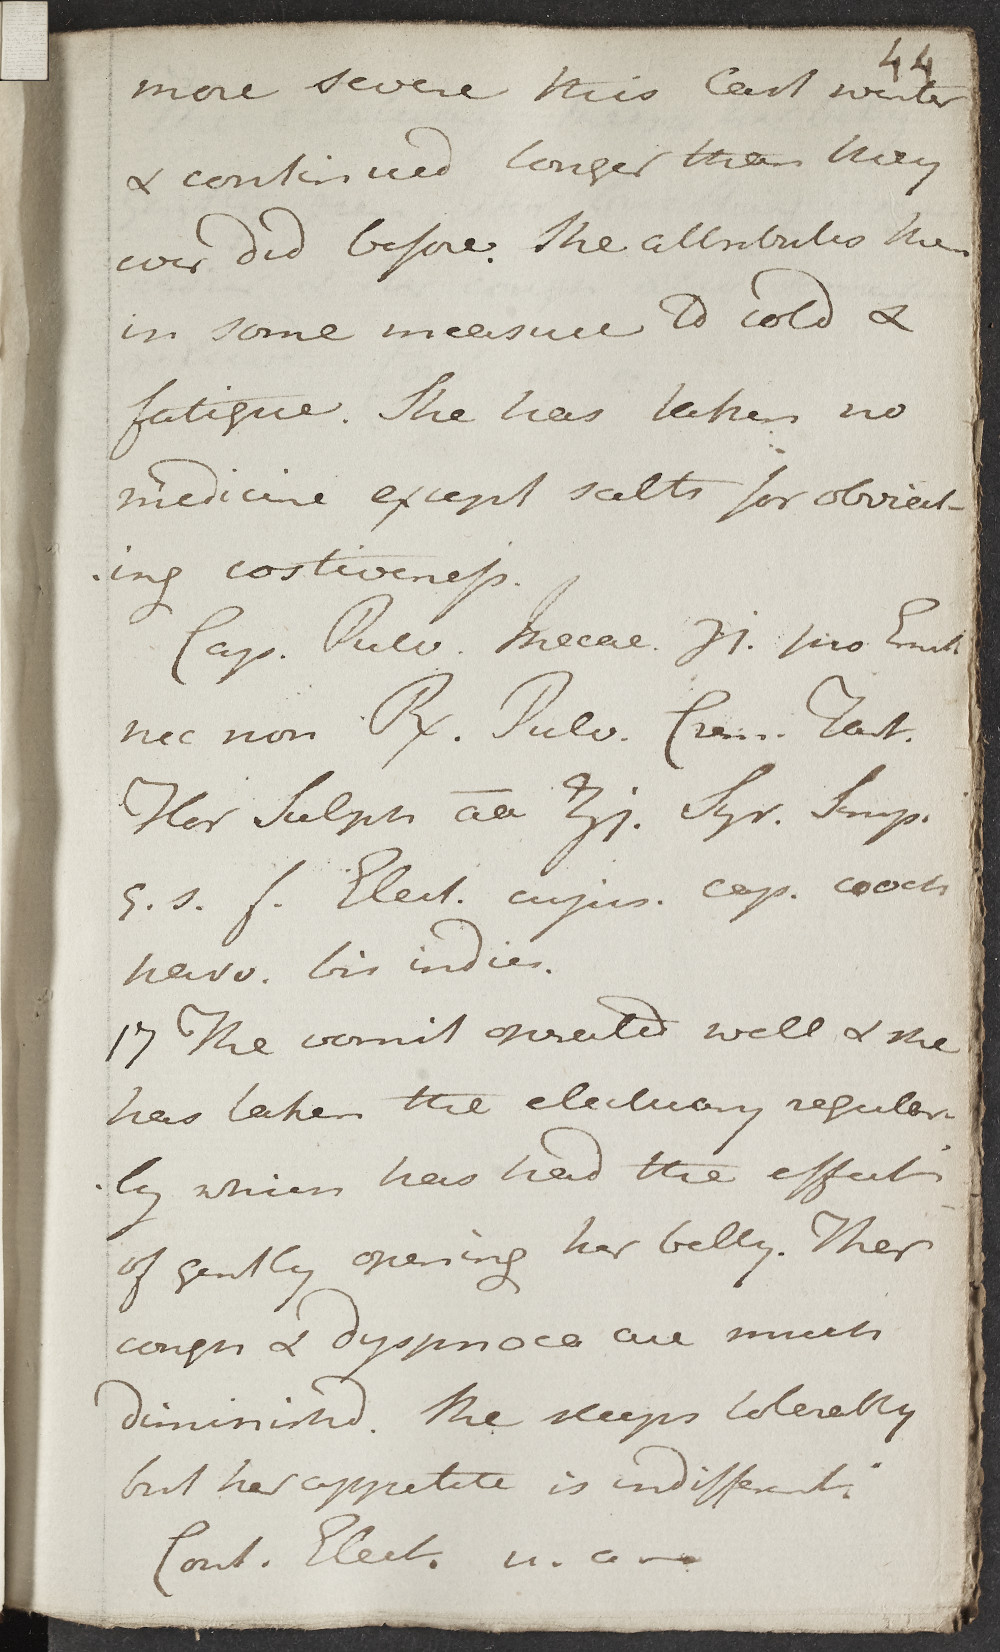 44
more severe this last winter
& continued longer than they
ever did before. She attributes them
in some measure to cold &
fatigue. She has taken no
medicine except salts for obviat-
ing costiveness.
Cap. Pulv. Ipecac. ʒj. pro Emet
nec non Rx. Pulv. Crem. Tart.
Flor Sulph aa ℥j. Syr. Simp.
q. s. f. Elect. cujus. cap. cooch
parv. bis indies.
17 The vomit operated well & she
has taken the electuary regular-
ly which has had the effect
of gently opening her belly. Her
cough & dyspnoea are much
diminishd. She sleeps tolerably
but her appetite is indifferent.
Cont. Elect. u. a